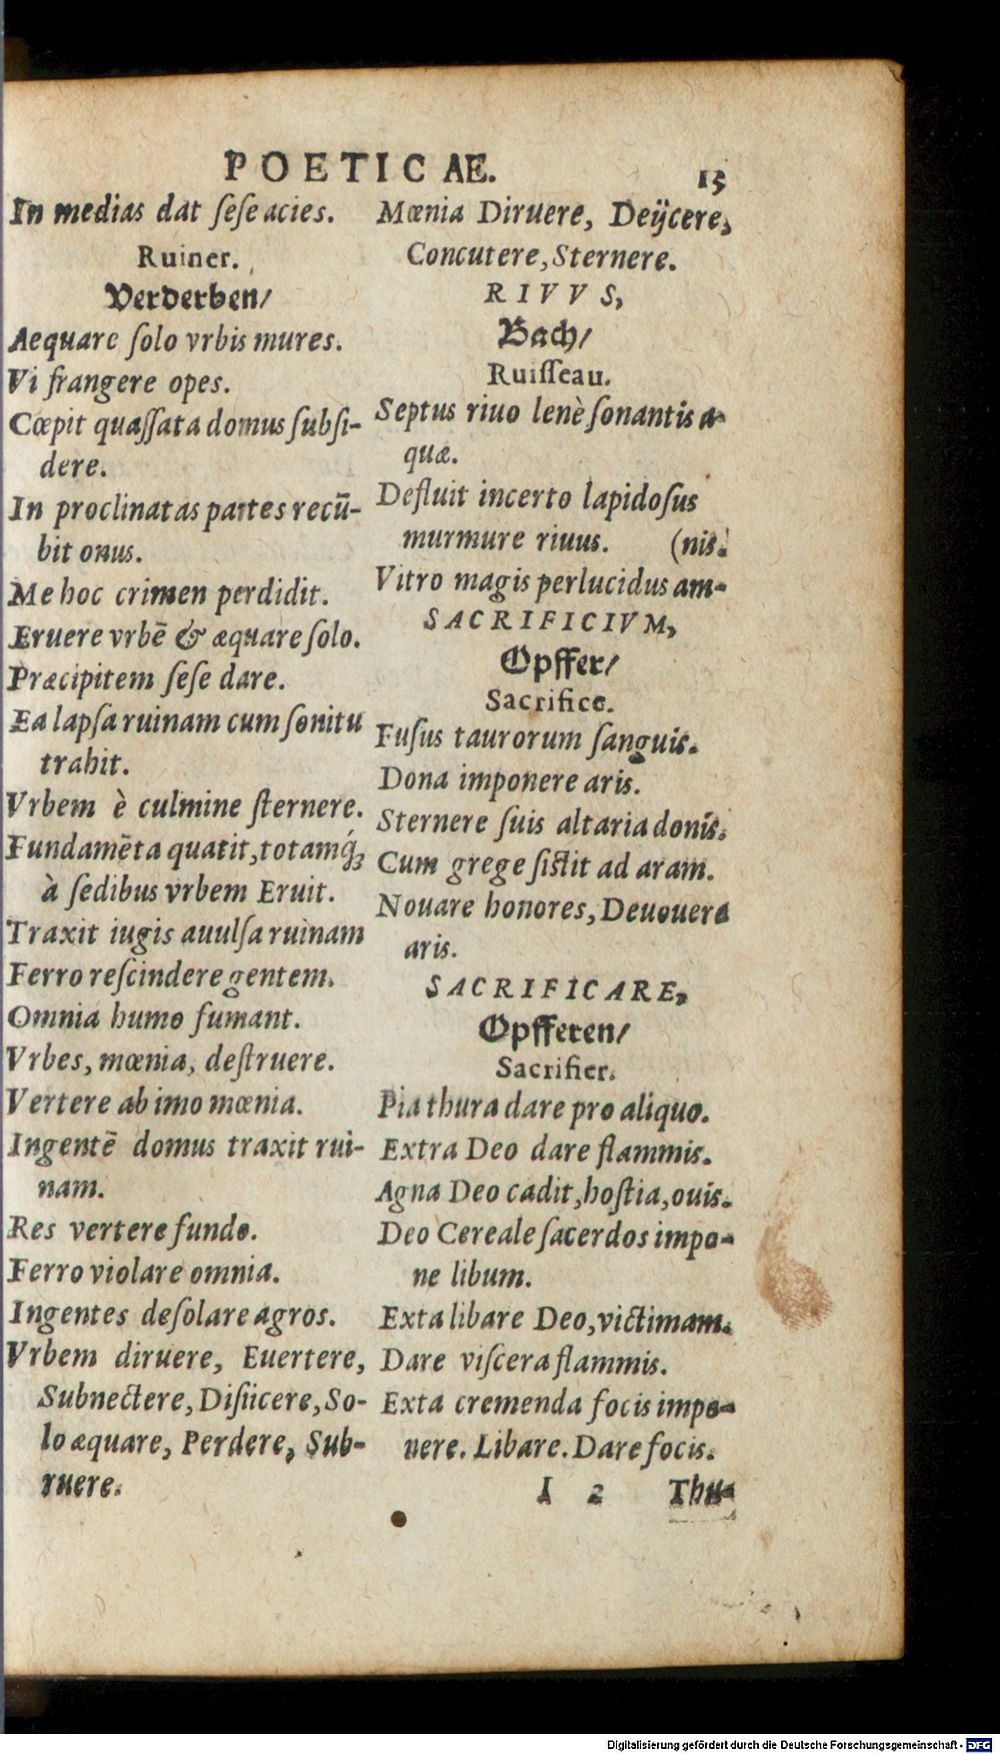 POETICAE. 15
In medias dat ſeſe acies.
Ruiner.
Verderben/
Aequare ſolo vrbis mures.
Vi frangere opes.
Cœpit quaſſata domus ſubſi-
dere.
In proclinatas partes recū-
bit onus.
Me hoc crimen perdidit.
Eruere vrbē & æquare ſolo.
Præcipitem ſeſe dare.
Ea lapſa ruinam cum ſonitu
trahit.
Vrbem è culmine ſternere.
Fundamēta quatit, totamq́ꝫ
à ſedibus vrbem Eruit.
Traxit iugis auulſa ruinam
Ferro reſcindere gentem.
Omnia humo fumant.
Vrbes, mœnia, deſtruere.
Vertere ab imo mœnia.
Ingentē domus traxit rui-
nam.
Res vertere fundo.
Ferro violare omnia.
Ingentes deſolare agros.
Vrbem diruere, Euertere,
Subnectere, Diſiicere, So-
lo æquare, Perdere, Sub-
ruere.
Mœnia Diruere, Deijcere,
Concutere, Sternere.
RIVVS,
Bach/
Ruiſſeau.
Septus riuo lenè ſonantis a-
quæ.
Defluit incerto lapidoſus
murmure riuus. (nis.
Vitro magis perlucidus am-
SACRIFICIVM,
Opffer/
Sacrifice.
Fuſus taurorum ſanguis.
Dona imponere aris.
Sternere ſuis altaria donis.
Cum grege ſiſtit ad aram.
Nouare honores, Deuouere
aris.
SACRIFICARE,
Opfferen/
Sacrifier.
Pia thura dare pro aliquo.
Extra Deo dare flammis.
Agna Deo cadit, hoſtia, ouis.
Deo Cereale ſacerdos impo-
ne libum.
Exta libare Deo, victimam.
Dare viſcera flammis.
Exta cremenda focis impo-
nere. Libare. Dare focis.
I 2 Thu-
Digitalisierung gefördert durch die Deutsche Forschungsgemeinschaft - DFG